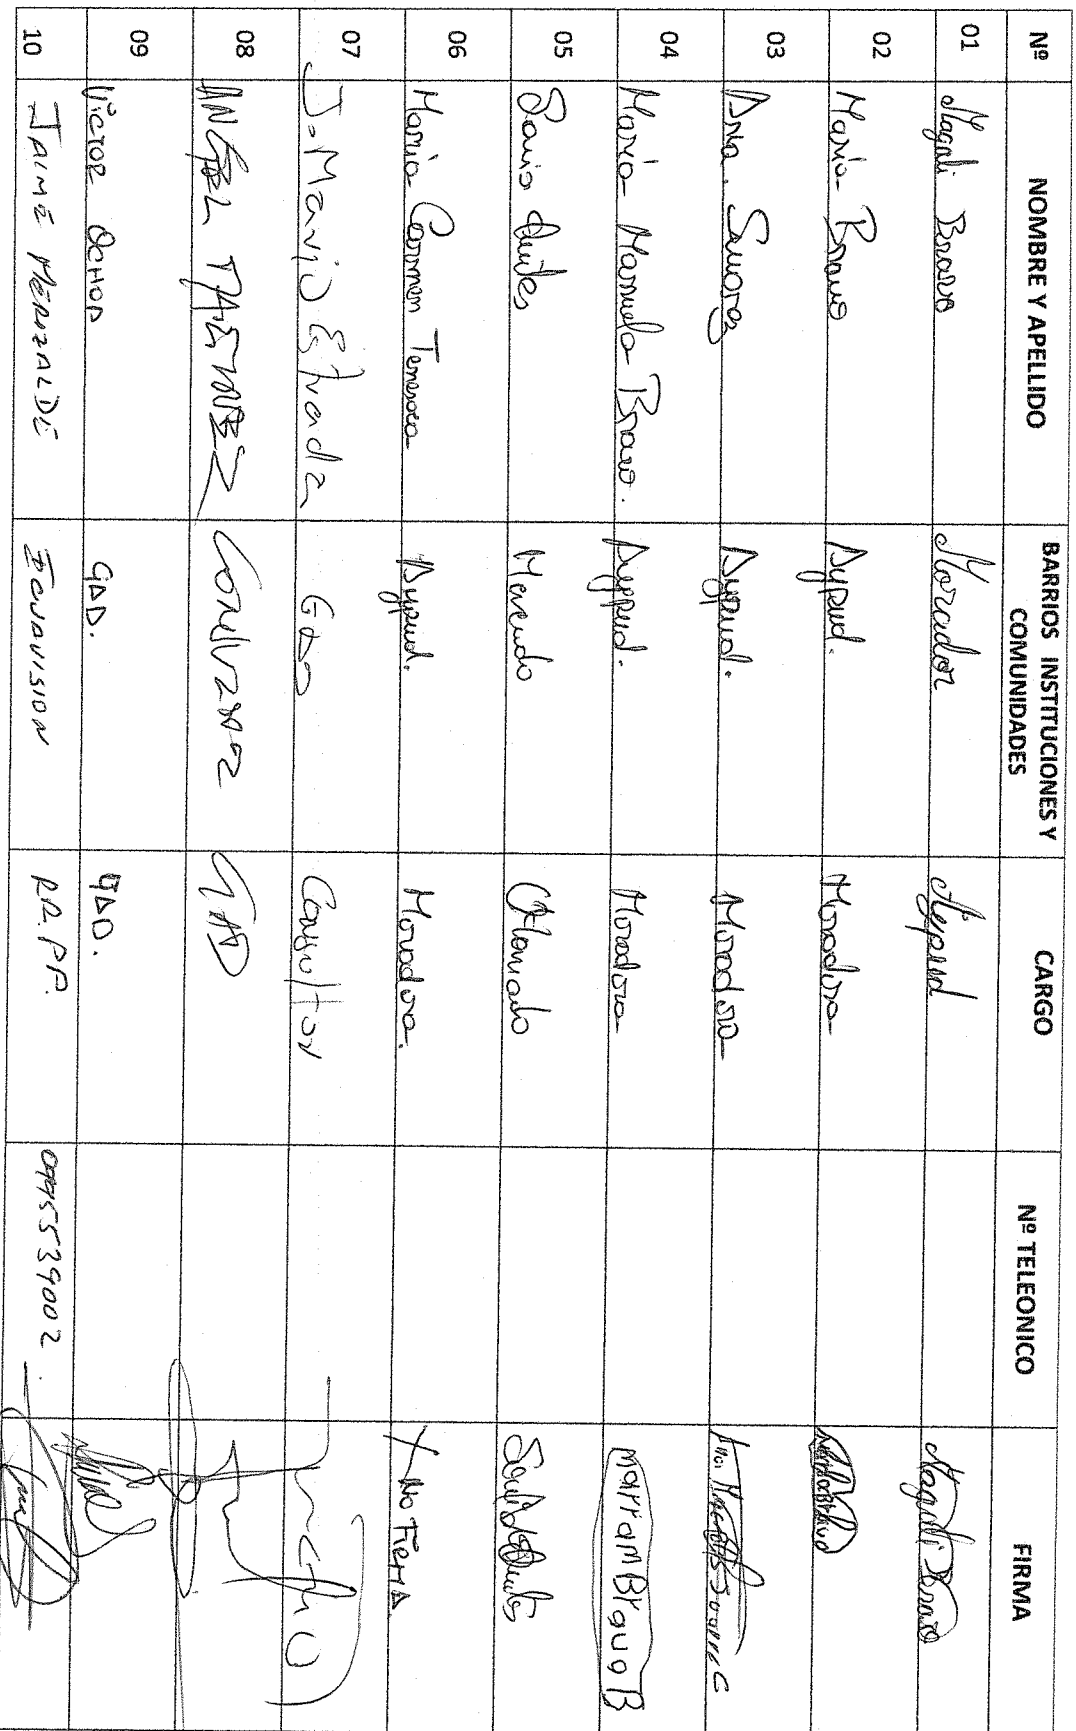 Nº NOMBRE Y APELLIDO BARRIOS INSTITUCIONES Y COMUNIDADES CARGO Nº TELEONICO FIRMA
01 Magali Bravo Morador Aypud Magali Bravo
02 Maria Bravo Aypud. Moradora
03 Ana. Aypud. Moradora
04 Maria Manuela Bravo. Aypud. Moradora mariamBravoB
05 Sonia Quiles Mercado
06 Maria Carmen Tenesaca Aypud. Moradora. X No Firma
07 J. Mario Estrada GAD Consultor
08 ANGEL GAD
09 Victor Ochoa GAD. GAD.
10 JAIME MERIZALDE ECUAVISION RR.PP. 0995539002